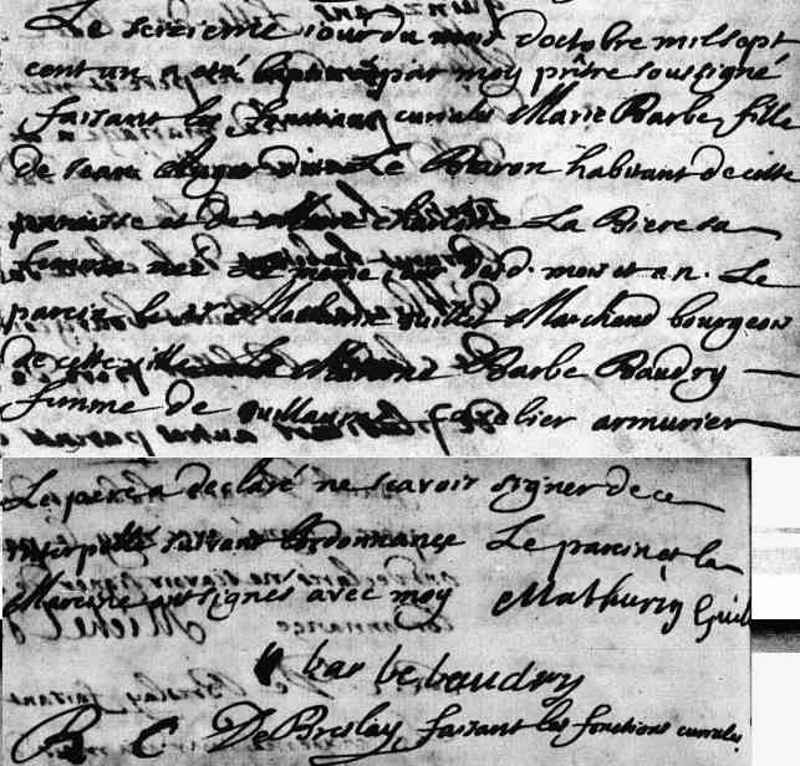 Le seizieme iour du mois d'octobre mil sept
cent un a eté baptiseé par moy prêtre soussigné
faisant les fonctions curiales Marie Barbe fille
de Jean Le Baron habitant de cette
parroisse et de Marie Charlotte La Biere sa
femme neé le meme iour desd. mois et an. Le
parein le Sr Mathurin Guillet Marchand bourgeois
de cette ville La Mareine Barbe Baudry
femme de Guillaume cavelier armurier
Le pere a declaré ne scavoir signer de ce
interpellé suivant l'ordonnance Le parein et la
Mareine ont signés avec moy Mathurin Guil
barbe baudry
R C De Breslay faisant les fonctions curiales